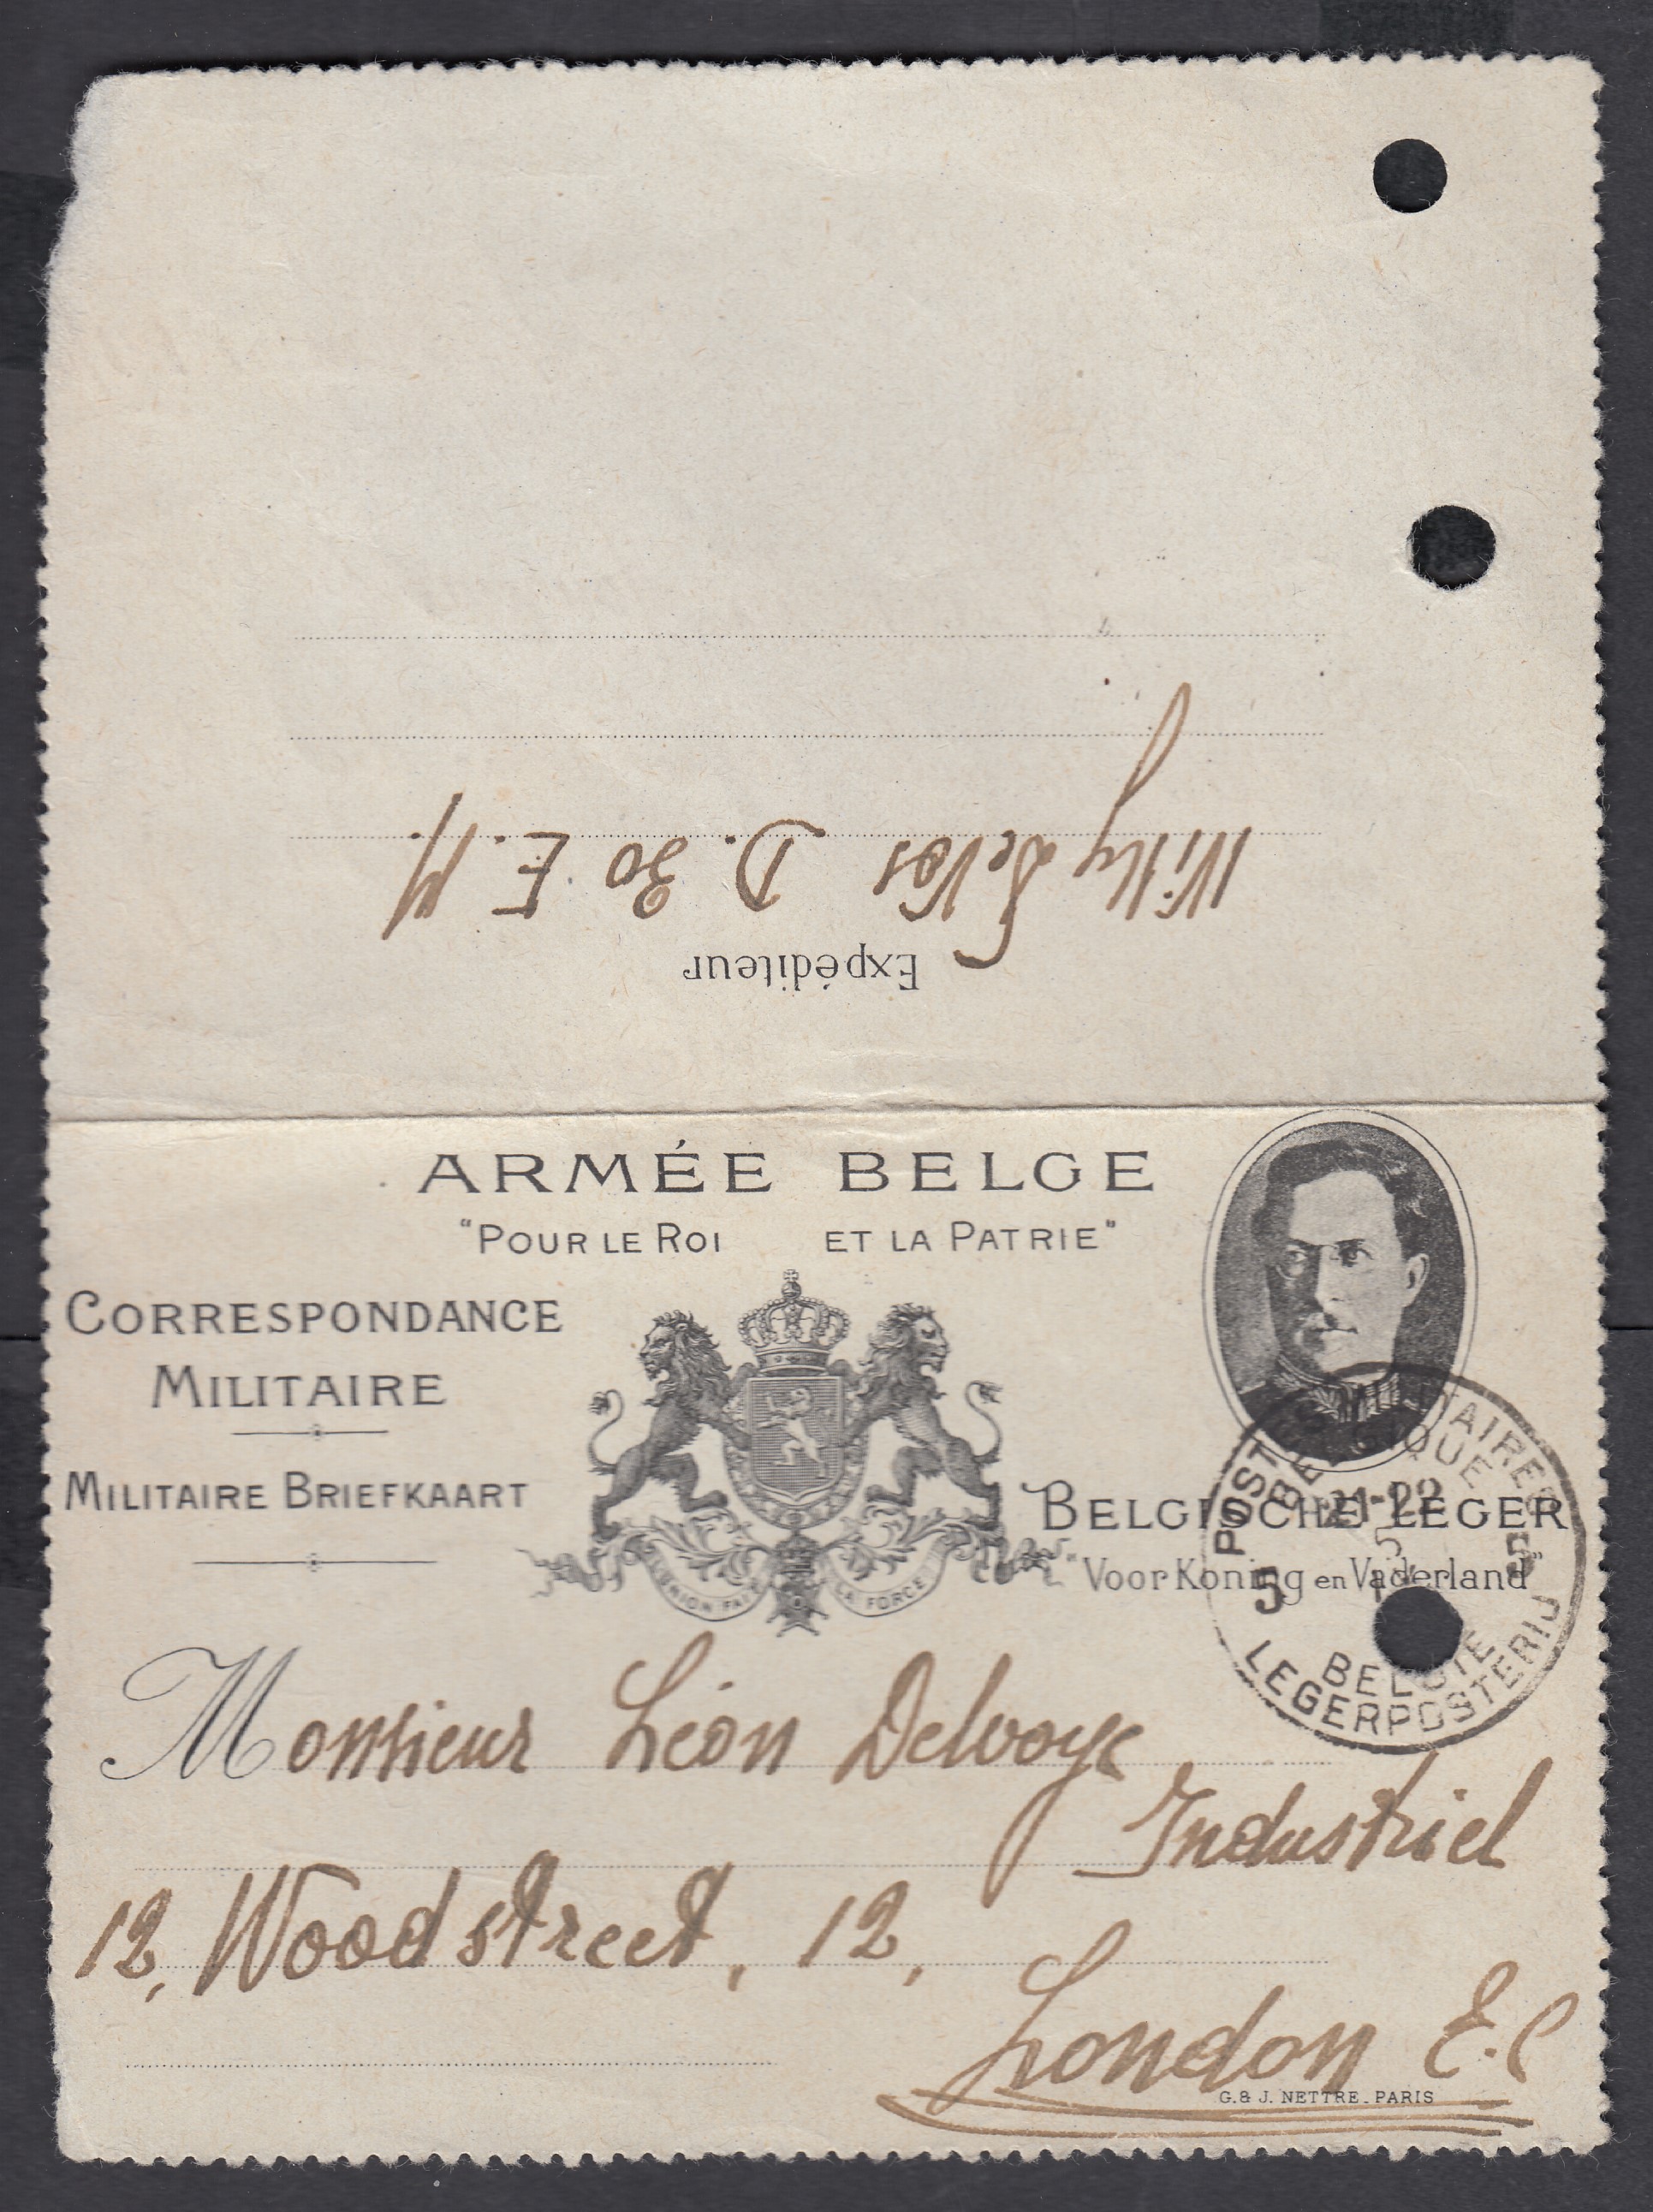 Expéditeur
Willy DeVos D. 30 E. M.
ARMÉE BELGE
"POUR LE ROI ET LA PATRIE"
CORRESPONDANCE
MILITAIRE
MILITAIRE BRIEFKAART
L'UNION FAIT LA FORCE
BELGISCHE LEGER
"Voor Koning en Vaderland"
POSTES MILITAIRES
BELGIQUE
21-22
5
5 5
BELGIE
LEGERPOSTERIJ
Monsieur Léon Delvoye
Industriel
12, Woodstreet, 12,
London E.C
G. & J. NETTRE_PARIS